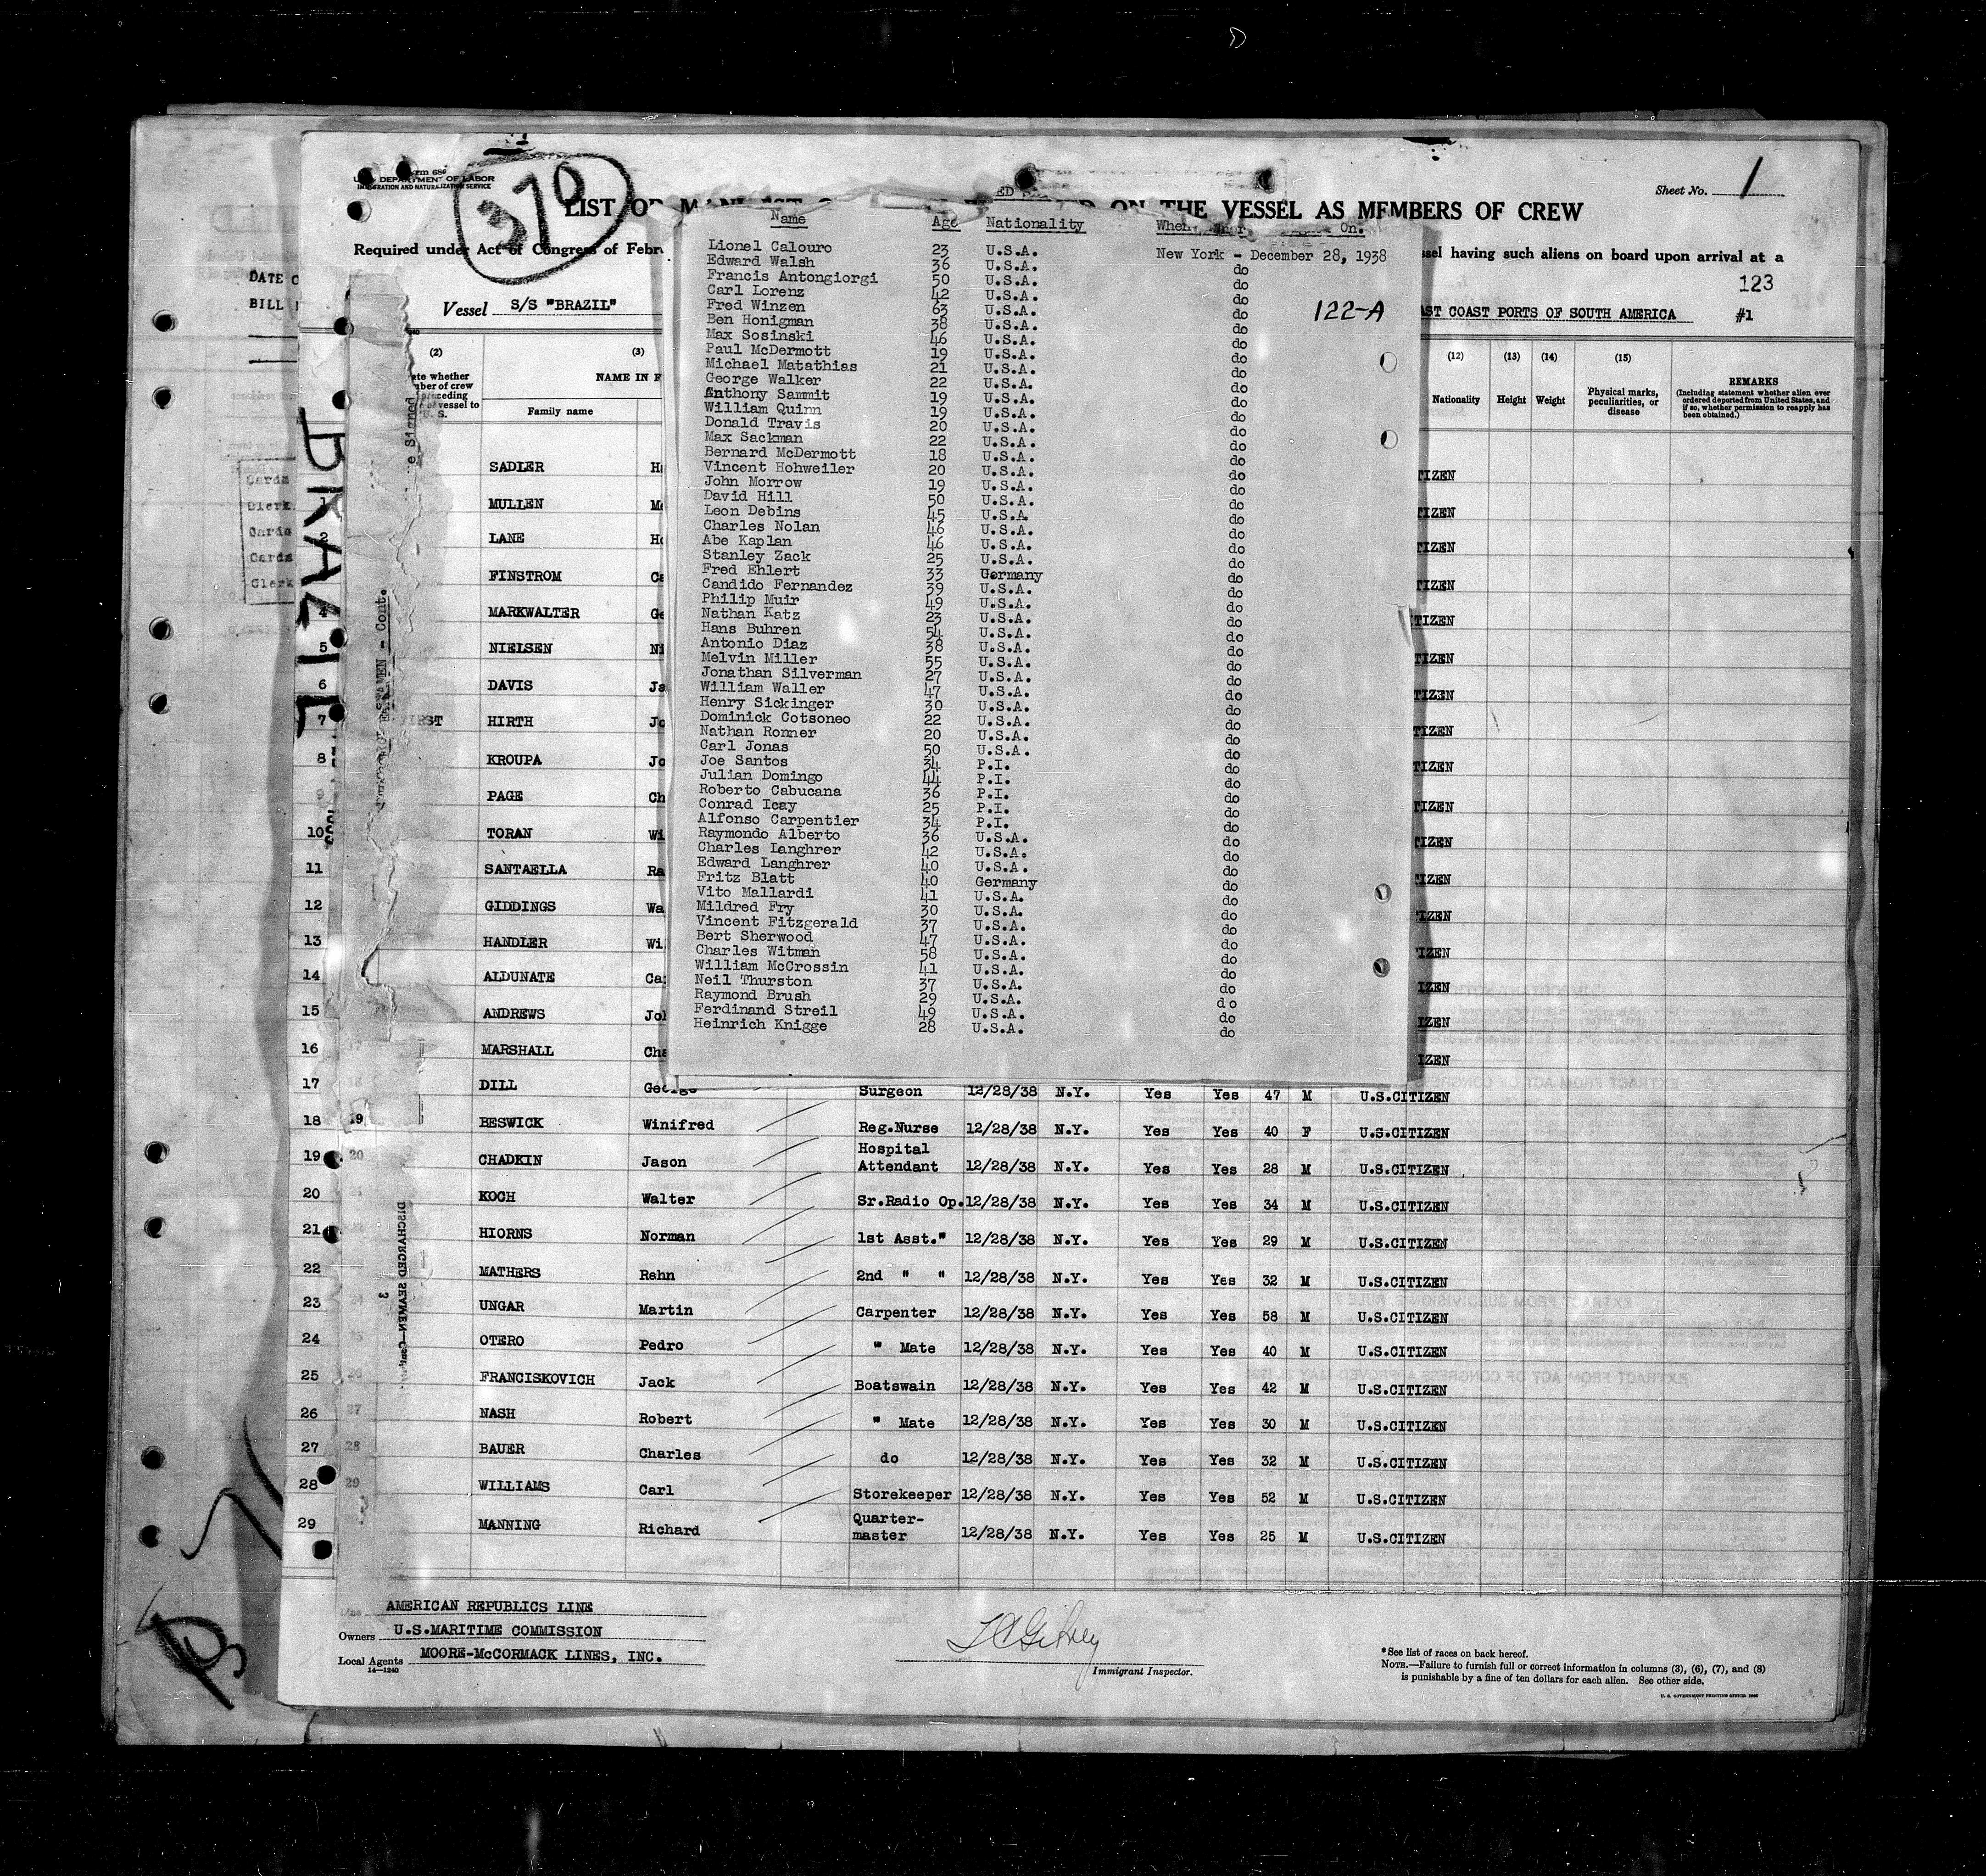 Form 686
U. S. DEPARTMENT OF LABOR
IMMIGRATION AND NATURALIZATION SERVICE
370
Sheet No. 1
LIST OR MANIFEST ON THE VESSEL AS MEMBERS OF CREW
Required under Act of Congress of Febr
ssel having such aliens on board upon arrival at a
123
Vessel S/S "BRAZIL"
AST COAST PORTS OF SOUTH AMERICA #1
DATE O
BILL
BRAZIL
Cards
Clerk
Cards
Cards
Clerk
Name Age Nationality When On.
Lionel Calouro 23 U.S.A. New York - December 28, 1938
Edward Walsh 36 U.S.A. do
Francis Antongiorgi 50 U.S.A. do
Carl Lorenz 42 U.S.A. do
Fred Winzen 63 U.S.A. do
122-A
Ben Honigman 38 U.S.A. do
Max Sosinski 46 U.S.A. do
Paul McDermott 19 U.S.A. do
Michael Matathias 21 U.S.A. do
George Walker 22 U.S.A. do
Anthony Sammit 19 U.S.A. do
William Quinn 19 U.S.A. do
Donald Travis 20 U.S.A. do
Max Sackman 22 U.S.A. do
Bernard McDermott 18 U.S.A. do
Vincent Hohweiler 20 U.S.A. do
John Morrow 19 U.S.A. do
David Hill 50 U.S.A. do
Leon Debins 45 U.S.A. do
Charles Nolan 46 U.S.A. do
Abe Kaplan 46 U.S.A. do
Stanley Zack 25 U.S.A. do
Fred Ehlert 33 Germany do
Candido Fernandez 39 U.S.A. do
Philip Muir 49 U.S.A. do
Nathan Katz 23 U.S.A. do
Hans Buhren 54 U.S.A. do
Antonio Diaz 38 U.S.A. do
Melvin Miller 55 U.S.A. do
Jonathan Silverman 27 U.S.A. do
William Waller 47 U.S.A. do
Henry Sickinger 30 U.S.A. do
Dominick Cotsoneo 22 U.S.A. do
Nathan Ronner 20 U.S.A. do
Carl Jonas 50 U.S.A. do
Joe Santos 34 P.I. do
Julian Domingo 44 P.I. do
Roberto Cabucana 36 P.I. do
Conrad Icay 25 P.I. do
Alfonso Carpentier 34 P.I. do
Raymondo Alberto 36 U.S.A. do
Charles Langhrer 42 U.S.A. do
Edward Langhrer 40 U.S.A. do
Fritz Blatt 40 Germany do
Vito Mallardi 41 U.S.A. do
Mildred Fry 30 U.S.A. do
Vincent Fitzgerald 37 U.S.A. do
Bert Sherwood 47 U.S.A. do
Charles Witman 58 U.S.A. do
William McCrossin 41 U.S.A. do
Neil Thurston 37 U.S.A. do
Raymond Brush 29 U.S.A. do
Ferdinand Streil 49 U.S.A. do
Heinrich Knigge 28 U.S.A. do
(2) (3) (12) (13) (14) (15)
NAME IN F
Family name
Nationality Height Weight
Physical marks, peculiarities, or disease
REMARKS
(Including statement whether alien ever ordered deported from United States, and if so, whether permission to reapply has been obtained.)
SADLER TIZEN
1 MULLEN TIZEN
2 LANE TIZEN
FINSTROM Ca TIZEN
4 MARKWALTER Ge TIZEN
5 NIELSEN Ni TIZEN
6 DAVIS Ja TIZEN
7 FIRST HIRTH Jo TIZEN
8 KROUPA Jo TIZEN
9 PAGE Ch TIZEN
10 TORAN Wi TIZEN
11 SANTAELLA Ra TIZEN
12 GIDDINGS Wa IZEN
13 HANDLER Wi IZEN
14 ALDUNATE Ca IZEN
15 ANDREWS Joh IZEN
16 MARSHALL Cha IZEN
17 DILL George Surgeon 12/28/38 N.Y. Yes Yes 47 M U.S.CITIZEN
18 19 BESWICK Winifred Reg.Nurse 12/28/38 N.Y. Yes Yes 40 F U.S.CITIZEN
19 20 CHADKIN Jason Hospital Attendant 12/28/38 N.Y. Yes Yes 28 M U.S.CITIZEN
20 KOCH Walter Sr.Radio Op. 12/28/38 N.Y. Yes Yes 34 M U.S.CITIZEN
21 HIORNS Norman 1st Asst." 12/28/38 N.Y. Yes Yes 29 M U.S.CITIZEN
22 MATHERS Rehn 2nd " " 12/28/38 N.Y. Yes Yes 32 M U.S.CITIZEN
23 UNGAR Martin Carpenter 12/28/38 N.Y. Yes Yes 58 M U.S.CITIZEN
24 OTERO Pedro " Mate 12/28/38 N.Y. Yes Yes 40 M U.S.CITIZEN
25 FRANCISKOVICH Jack Boatswain 12/28/38 N.Y. Yes Yes 42 M U.S.CITIZEN
26 27 NASH Robert " Mate 12/28/38 N.Y. Yes Yes 30 M U.S.CITIZEN
27 28 BAUER Charles do 12/28/38 N.Y. Yes Yes 32 M U.S.CITIZEN
28 29 WILLIAMS Carl Storekeeper 12/28/38 N.Y. Yes Yes 52 M U.S.CITIZEN
29 MANNING Richard Quarter-master 12/28/38 N.Y. Yes Yes 25 M U.S.CITIZEN
DISCHARGED SEAMEN—Cont.
3
Line AMERICAN REPUBLICS LINE
Owners U.S.MARITIME COMMISSION
Local Agents MOORE-McCORMACK LINES, INC.
14—1240
Immigrant Inspector.
*See list of races on back hereof.
NOTE.—Failure to furnish full or correct information in columns (3), (6), (7), and (8)
is punishable by a fine of ten dollars for each alien. See other side.
U. S. GOVERNMENT PRINTING OFFICE